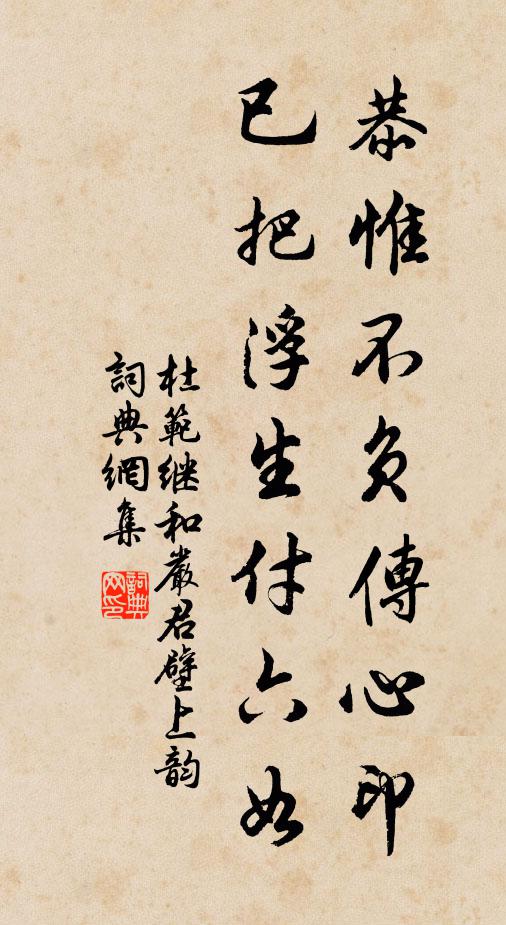 恭惟不负傳心印
已把浮生付六如
杜範继和嚴君壁上韵
詞典網集
詞典网印